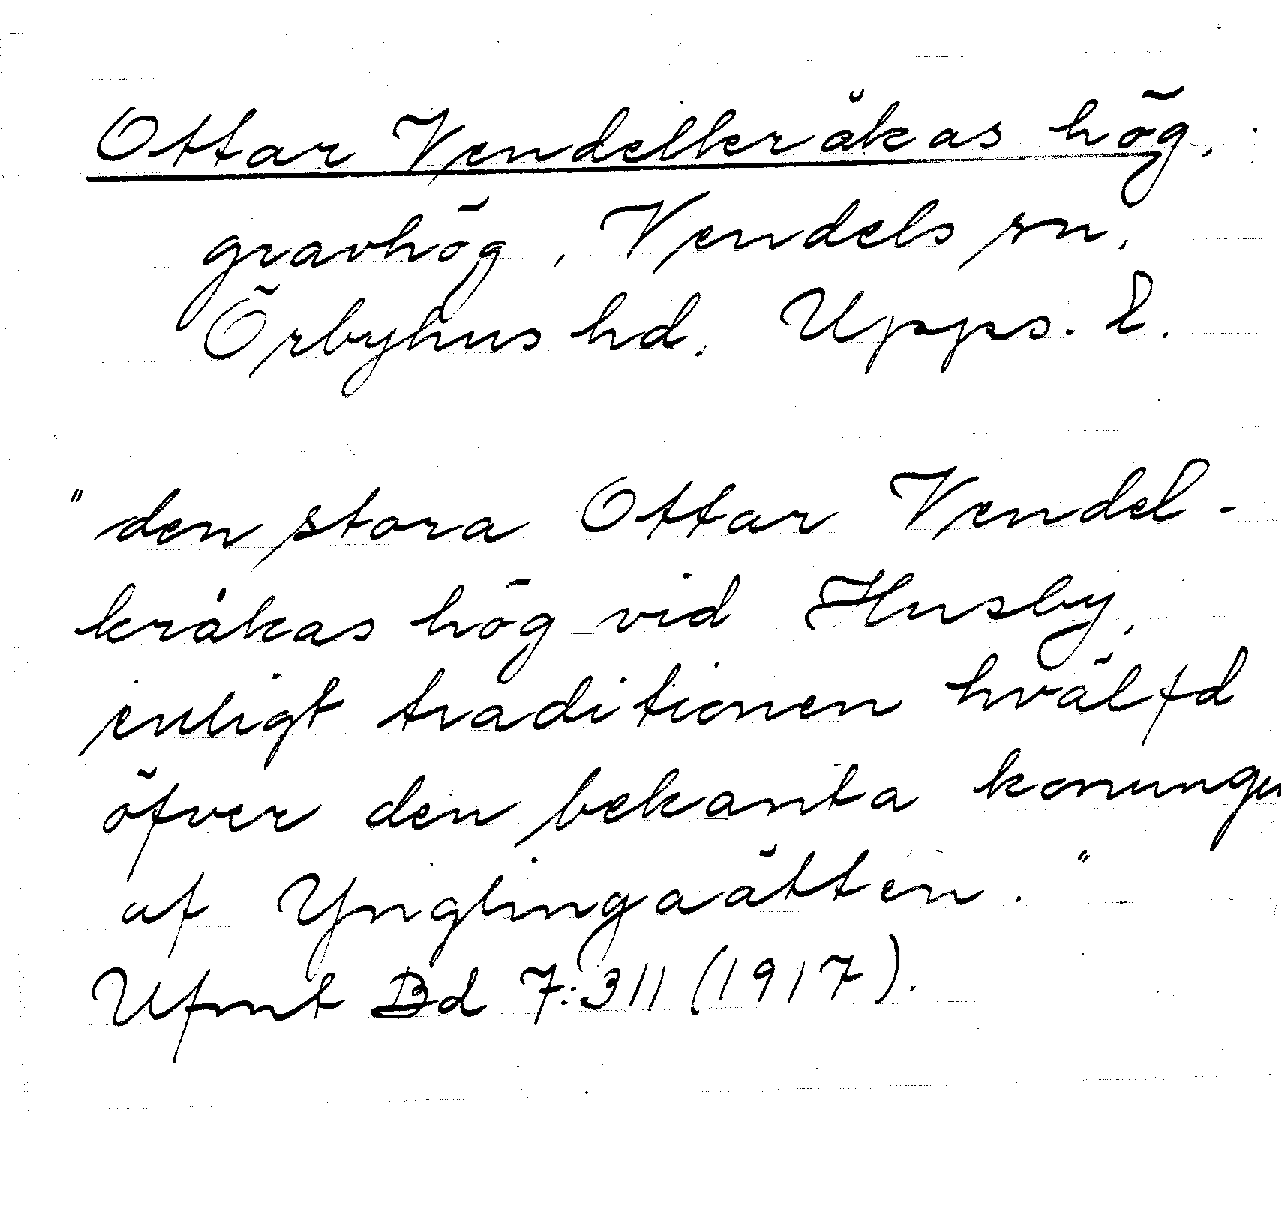 Ottar Vendelkråkas hög,
gravhög, Vendels sn,
Örbyhus hd, Upps. l.
"den stora Ottar Vendel-
kråkas hög vid Husby,
enligt traditionen hvälfd
öfver den bekanta konungen
af Ynglingaätten."
Ufmt Bd 7:311 (1917).